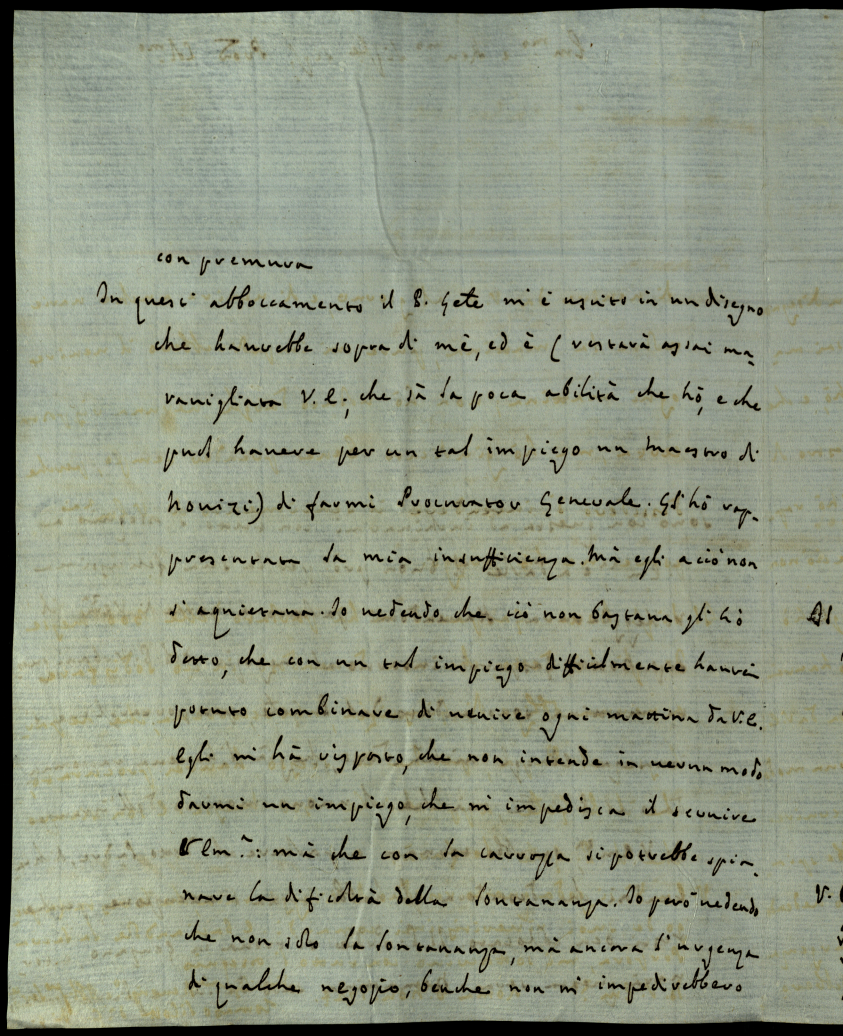 con premura
In quest abboccamento il P. Gente mi è uscito in un disegno
che haurebbe sopra di mè, ed è (restarà assai ma=
rauigliata V.E., che sà la poca abilità che hò, e che
può hauere per un tal impiego un Maestro di
Nouizi) di farmi Procurator Generale. Gl'hò rap=
presentata la mia insufficienza. Mà egli a ciò non
s'aquietaua. Io uedendo che ciò non bastaua gl'hò
detto, che con un tal impiego difficilmente haurei
potuto combinare di uenire ogni mattina da V.E.
Egli mi hà risposto, che non intende in uerun modo
darmi un impiego, che mi impedisca il seruire
V Em.ª: mà che con la carrozza si potrebbe spia=
nare la dificoltà della lontananza. Io però uedendo
che non solo la lontananza, mà ancora l'urgenza
di qualche negozio, benche non mi impedirebbero
Al
V.